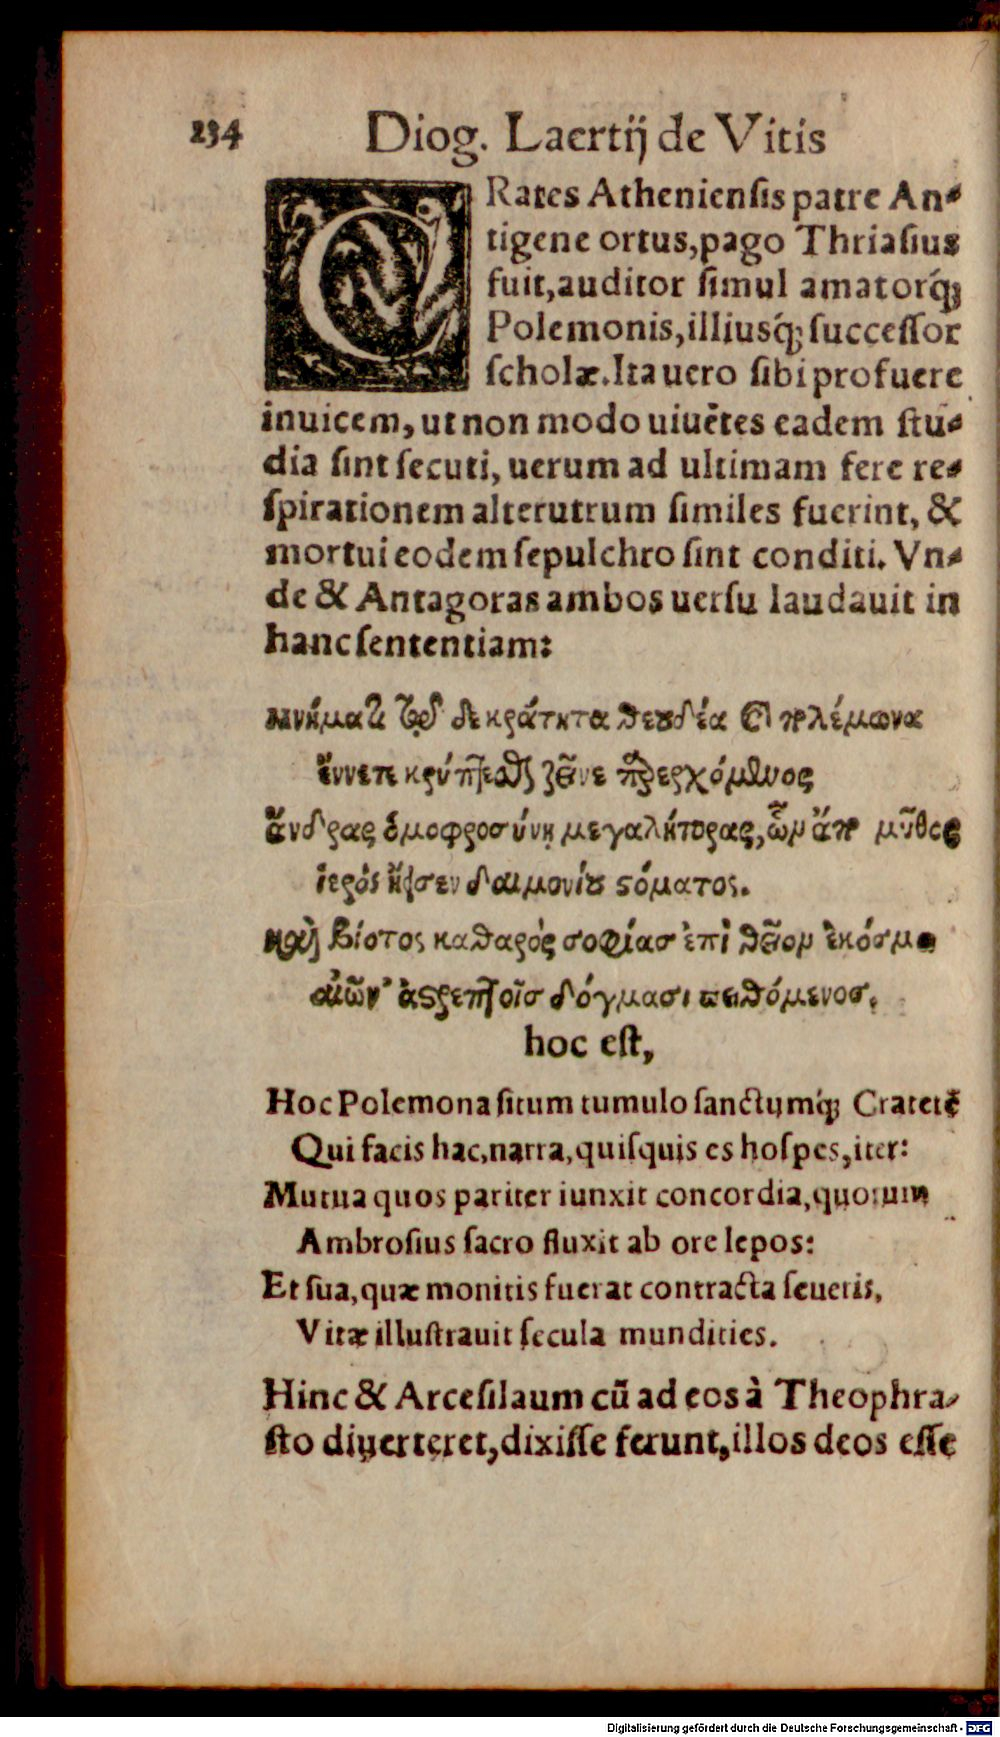 234 Diog. Laertij de Vitis
CRates Atheniensis patre An-
tigene ortus, pago Thriasius
fuit, auditor simul amatorq́;
Polemonis, illiusq́; successor
scholæ. Ita uero sibi profuere
inuicem, ut non modo uiuẽtes eadem stu-
dia sint secuti, uerum ad ultimam fere re-
spirationem alterutrum similes fuerint, &
mortui eodem sepulchro sint conditi. Vn-
de & Antagoras ambos uersu laudauit in
hanc sententiam:
μνήματι τῷδε κράτητα θεουδέα καὶ πολέμωνα
ἔννεπε κρύπτεσθαι ξεῖνε παρερχόμενος
ἄνδρας ὁμοφροσύνῃ μεγαλήτορας, ὧν ἄπο μῦθος
ἱερὸς ἤϊσεν δαιμονίου στόματος.
καὶ βίοτος καθαρὸς σοφίας ἐπὶ θεῖον ἐκόσμει
αἰῶν' ἀστρέπτοις δόγμασι πειθόμενος.
hoc est,
Hoc Polemona situm tumulo sanctumq́; Cratetẽ
Qui facis hac, narra, quisquis es hospes, iter:
Mutua quos pariter iunxit concordia, quorum
Ambrosius sacro fluxit ab ore lepos:
Et sua, quæ monitis fuerat contracta seueris,
Vitæ illustrauit secula mundities.
Hinc & Arcesilaum cũ ad eos à Theophra-
sto diuerteret, dixisse ferunt, illos deos esse
Digitalisierung gefördert durch die Deutsche Forschungsgemeinschaft - DFG